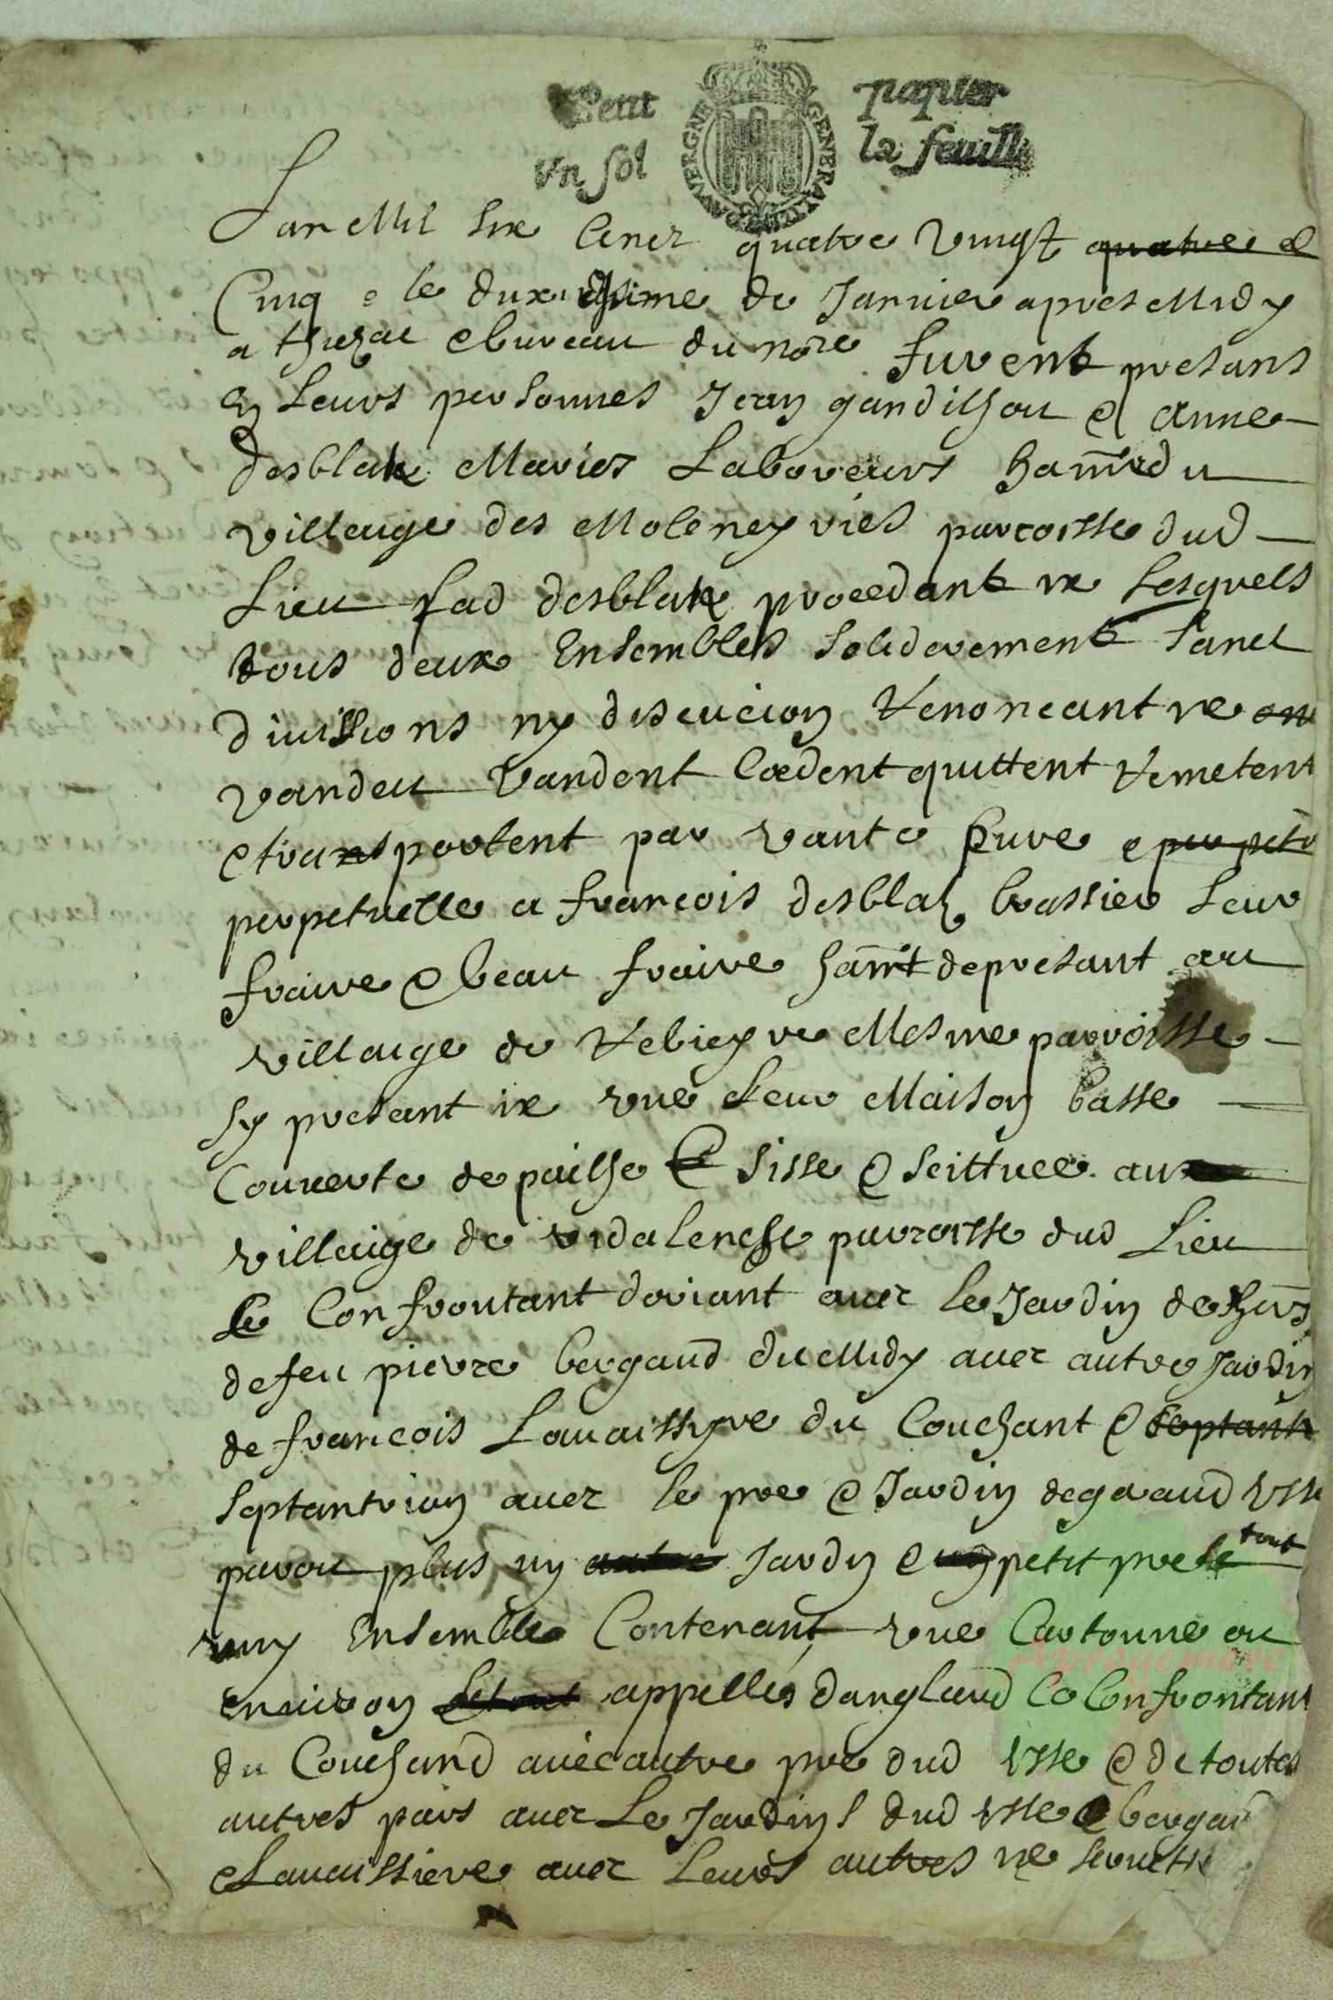 Petit papier
Vn sol la feuille
AUVERGNE GENERALITE D
Lan Mil Six Cenz quatre Vingt quatre e
Cinq e le duxiesme de Janvier apres Midy
a thiezac e bureau du nore furent presans
En Leurs personnes Jean gandilhon e Anne
desblatz Maries Laboureurs ham du
Villaige des Moleneyries parroisse dud
Lieu Lad desblatz procedant Lesquels
tous deux Ensembles Soliderement Sanct
divissions ny discucion Renonceant
vandeu Vandent Coedent quittent Remetent
e transportent par vante pure e perpetu
perpetuelle a francois desblatz brassier Leur
fraire e beau fraire hamt de presant au
villaige de Rebieyre Mesme parroisse
Sy presant vne Leur Maison basse
Couverte de pailhe Sisse e Seittuee au
villaige de vidalenche parroisse dud Lieu
Le Confrontant doriant avec Le Jardin de hers
de feu pierre bergaud du Midy avec autre Jardin
de francois Lavaissyre du Couchant e Septant
Septantrion avec le pre e Jardin de geraud
parou plus un autre Jardin e un petit pre Le tout
uny Ensemble Contenant vne Cartonne ou
environ Le tout appelles danglaud Le Confrontant
du Couchand avec autre pre dud e de toutes
autres pars avec Le Jardins dud e bergaud
e Lavaissiere avec Leurs autres